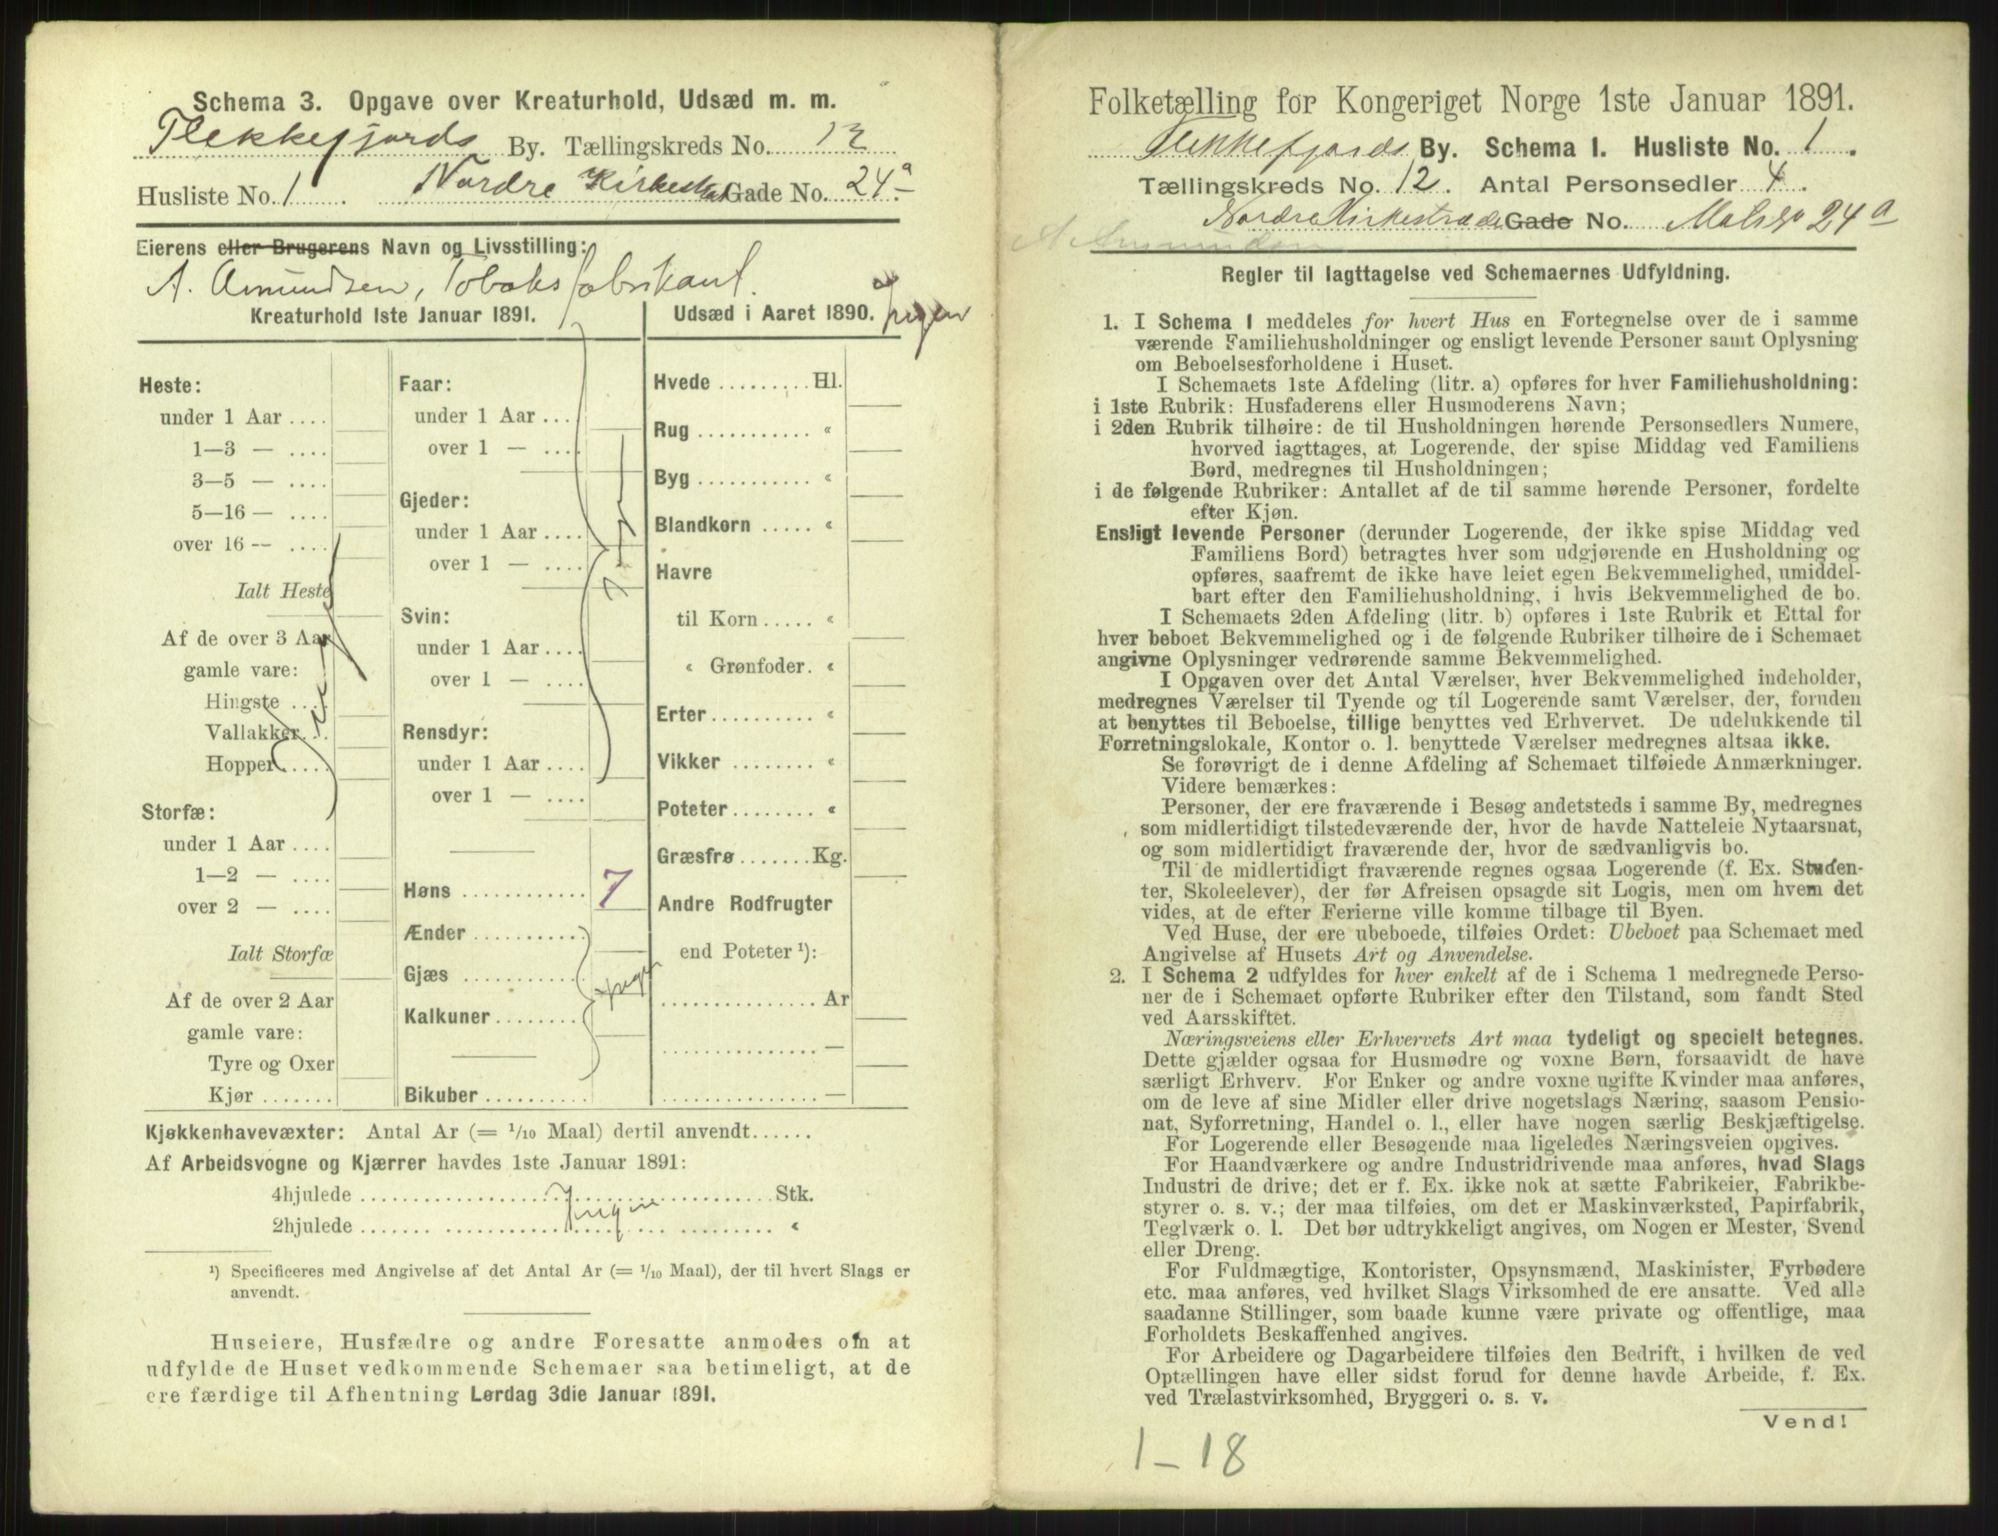 Schema 3. Opgave over Kreaturhold, Udsæd m. m.
Flekkefjords By. Tællingskreds No. 12
Husliste No. 1 Nordre Kirkestræde Gade No. 24a
Eierens eller Brugerens Navn og Livsstilling:
A. Amundsen, Tobaksfabrikant.
Kreaturhold 1ste Januar 1891.
Heste:
under 1 Aar ....
1—3 — ....
3—5 — ....
5—16 — ....
over 16 — ....
Ialt Heste
Af de over 3 Aar
gamle vare:
Hingste ....
Vallakker...
Hopper.....
Ingen
Storfæ:
under 1 Aar ....
1—2 — ....
over 2 — ....
Ialt Storfæ
Af de over 2 Aar
gamle vare:
Tyre og Oxer
Kjør .......
Faar:
under 1 Aar ....
over 1 — ....
Gjeder:
under 1 Aar ....
over 1 — ....
Ingen
Svin:
under 1 Aar ....
over 1 — ....
Rensdyr:
under 1 Aar ....
over 1 — ....
Høns ........... 7
Ænder ..........
Gjæs ...........
Ingen
Kalkuner........
Bikuber.........
Udsæd i Aaret 1890. Ingen
Hvede ......... Hl.
Rug ........... «
Byg ........... «
Blandkorn ..... «
Havre
til Korn ..... «
« Grønfoder. «
Erter.......... «
Vikker ........ «
Poteter........ «
Græsfrø ....... Kg.
Andre Rodfrugter
end Poteter ¹):
............... Ar
............... —
............... —
Kjøkkenhavevæxter: Antal Ar (= 1/10 Maal) dertil anvendt......
Af Arbeidsvogne og Kjærrer havdes 1ste Januar 1891:
4hjulede ........................ Stk.
Ingen
2hjulede ........................ «
¹) Specificeres med Angivelse af det Antal Ar (= 1/10 Maal), der til hvert Slags er
anvendt.
Huseiere, Husfædre og andre Foresatte anmodes om at
udfylde de Huset vedkommende Schemaer saa betimeligt, at de
ere færdige til Afhentning Lørdag 3die Januar 1891.
Folketælling for Kongeriget Norge 1ste Januar 1891.
Flekkefjords By. Schema I. Husliste No. 1.
Tællingskreds No. 12. Antal Personsedler 4.
Nordre Kirkestræde Gade No. 24a
A Amundsen
Regler til Iagttagelse ved Schemaernes Udfyldning.
1. I Schema I meddeles for hvert Hus en Fortegnelse over de i samme
værende Familiehusholdninger og ensligt levende Personer samt Oplysning
om Beboelsesforholdene i Huset.
I Schemaets 1ste Afdeling (litr. a) opføres for hver Familiehusholdning:
i 1ste Rubrik: Husfaderens eller Husmoderens Navn;
i 2den Rubrik tilhøire: de til Husholdningen hørende Personsedlers Numere,
hvorved iagttages, at Logerende, der spise Middag ved Familiens
Bord, medregnes til Husholdningen;
i de følgende Rubriker: Antallet af de til samme hørende Personer, fordelte
efter Kjøn.
Ensligt levende Personer (derunder Logerende, der ikke spise Middag ved
Familiens Bord) betragtes hver som udgjørende en Husholdning og
opføres, saafremt de ikke have leiet egen Bekvemmelighed, umiddel-
bart efter den Familiehusholdning, i hvis Bekvemmelighed de bo.
I Schemaets 2den Afdeling (litr. b) opføres i 1ste Rubrik et Ettal for
hver beboet Bekvemmelighed og i de følgende Rubriker tilhøire de i Schemaet
angivne Oplysninger vedrørende samme Bekvemmelighed.
I Opgaven over det Antal Værelser, hver Bekvemmelighed indeholder,
medregnes Værelser til Tyende og til Logerende samt Værelser, der, foruden
at benyttes til Beboelse, tillige benyttes ved Erhvervet. De udelukkende til
Forretningslokale, Kontor o. l. benyttede Værelser medregnes altsaa ikke.
Se forøvrigt de i denne Afdeling af Schemaet tilføiede Anmærkninger.
Videre bemærkes:
Personer, der ere fraværende i Besøg andetsteds i samme By, medregnes
som midlertidigt tilstedeværende der, hvor de havde Natteleie Nytaarsnat,
og som midlertidigt fraværende der, hvor de sædvanligvis bo.
Til de midlertidigt fraværende regnes ogsaa Logerende (f. Ex. Studen-
ter, Skoleelever), der før Afreisen opsagde sit Logis, men om hvem det
vides, at de efter Ferierne ville komme tilbage til Byen.
Ved Huse, der ere ubeboede, tilføies Ordet: Ubeboet paa Schemaet med
Angivelse af Husets Art og Anvendelse.
2. I Schema 2 udfyldes for hver enkelt af de i Schema 1 medregnede Perso-
ner de i Schemaet opførte Rubriker efter den Tilstand, som fandt Sted
ved Aarsskiftet.
Næringsveiens eller Erhvervets Art maa tydeligt og specielt betegnes.
Dette gjælder ogsaa for Husmødre og voxne Børn, forsaavidt de have
særligt Erhverv. For Enker og andre voxne ugifte Kvinder maa anføres,
om de leve af sine Midler eller drive nogetslags Næring, saasom Pensio-
nat, Syforretning, Handel o. l., eller have nogen særlig Beskjæftigelse.
For Logerende eller Besøgende maa ligeledes Næringsveien opgives.
For Haandværkere og andre Industridrivende maa anføres, hvad Slags
Industri de drive; det er f. Ex. ikke nok at sætte Fabrikeier, Fabrikbe-
styrer o. s. v.; der maa tilføies, om det er Maskinværksted, Papirfabrik,
Teglværk o. l. Det bør udtrykkeligt angives, om Nogen er Mester, Svend
eller Dreng.
For Fuldmægtige, Kontorister, Opsynsmænd, Maskinister, Fyrbødere
etc. maa anføres, ved hvilket Slags Virksomhed de ere ansatte. Ved alle
saadanne Stillinger, som baade kunne være private og offentlige, maa
Forholdets Beskaffenhed angives.
For Arbeidere og Dagarbeidere tilføies den Bedrift, i hvilken de ved
Optællingen have eller sidst forud for denne havde Arbeide, f. Ex.
ved Trælastvirksomhed, Bryggeri o. s. v.
Vend!
1 - 18